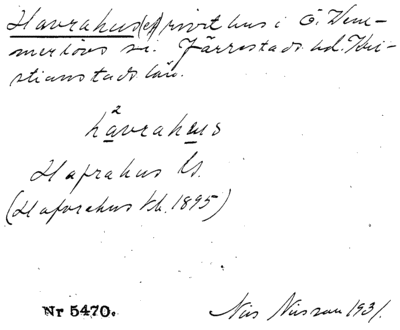 Havrahus(et) rivet hus i Ö. Vem-
merlövs sn. Järrestads hd. Kri-
stianstads län.
2
håvrahus
Hafrahus Us.
(Haforahus kb. 1895)
Nr 5470. Nils Nilsson 1931.